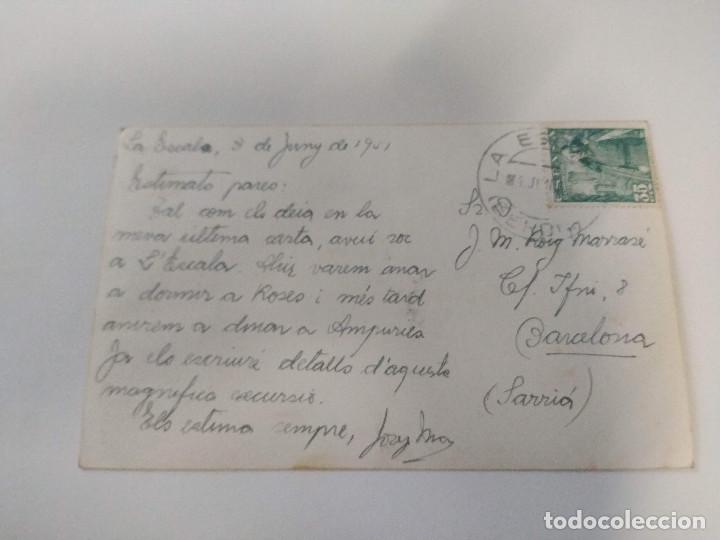 La Escala, 3 de Juny de 1951
Estimats pares:
Tal com els deia en la
meva última carta, avui soc
a L'Escala. Ahir varem anar
a dormir a Roses i més tard
anirem a dinar a Ampuries
Ja els escriuré detalls d'aquesta
magnífica excursió.
Els estima sempre,
Sr.
J. M. Roig Marrasé
C/ Ifni, 8
Barcelona
(Sarriá)
LA E
35
todocoleccion
todocoleccion.net